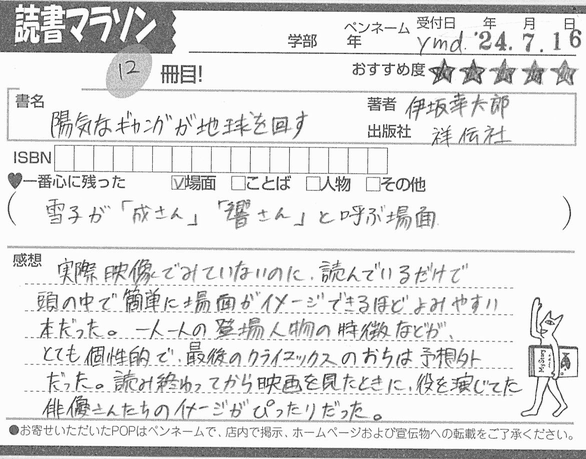 読書マラソン
学部 年 ペンネーム ymd. 受付日 年 月 日 '24.7.16
12 冊目! おすすめ度 ★★★★★
書名 陽気なギャングが地球を回す
著者 伊坂幸太郎
出版社 祥伝社
ISBN
♥一番心に残った ☑場面 □ことば □人物 □その他
(雪子が「成さん」「響さん」と呼ぶ場面)
感想 実際映像でみていないのに、読んでいるだけで
頭の中で簡単に場面がイメージできるほどよみやすい
本だった。一人一人の登場人物の特徴などが、
とても個性的で、最後のクライマックスのおちは予想外
だった。読み終わってから映画を見たときに、役を演じてた
俳優さんたちのイメージがぴったりだった。
●お寄せいただいたPOPはペンネームで、店内で掲示、ホームページおよび宣伝物への転載をご了承ください。